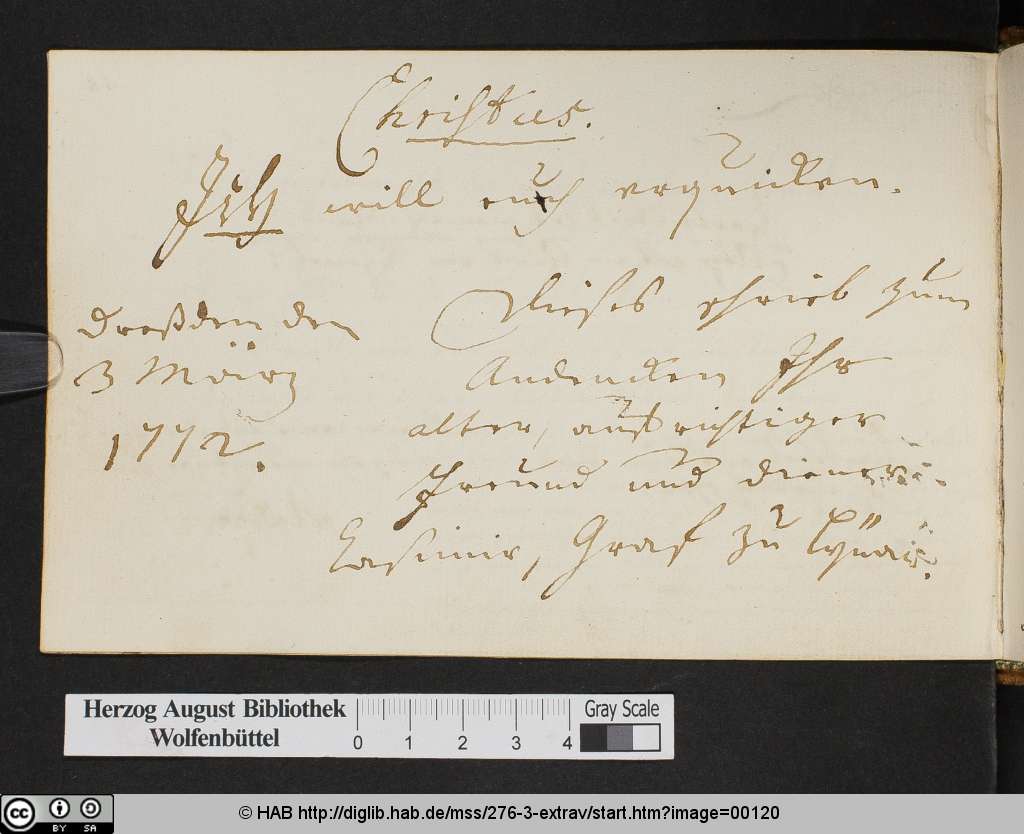 Christus.
Ich will euch erquicken.
Dresßden den
3 März
1772.
Dieses schrieb zum
Andencken Ihr
alter, aufrichtiger
Freund und diener
Casimir, Graf zu Lÿnar.
Herzog August Bibliothek
Wolfenbüttel
0 1 2 3 4
Gray Scale
cc BY SA
© HAB http://diglib.hab.de/mss/276-3-extrav/start.htm?image=00120